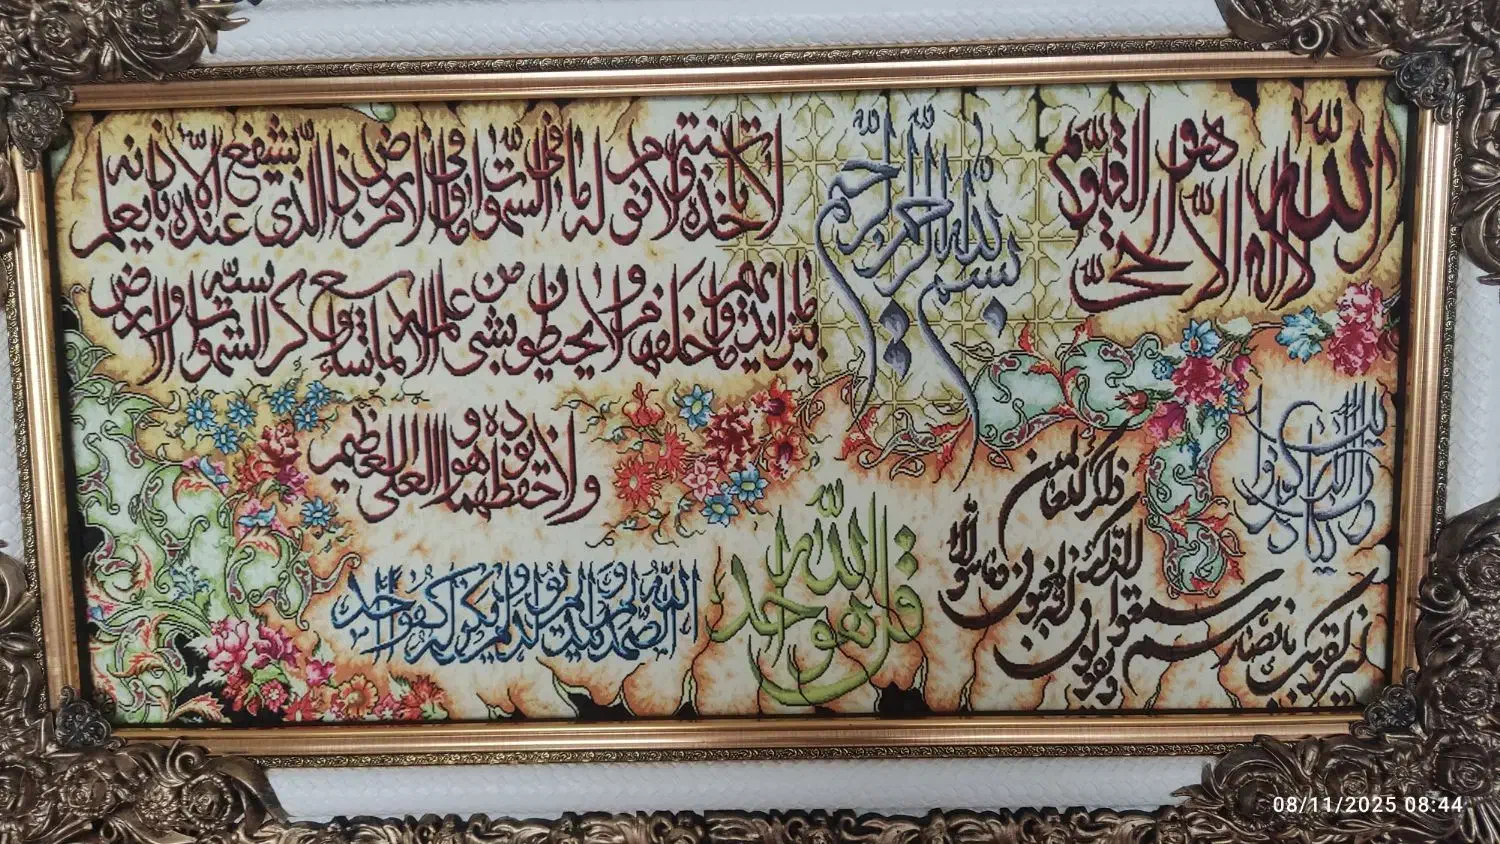 بسم الله الرحمن الرحيم
الله لا اله الا هو الحي القيوم
لا تاخذه سنة ولا نوم له ما في السموات وما في الارض من ذا الذي يشفع عنده الا باذنه يعلم
ما بين ايديهم وما خلفهم ولا يحيطون بشي من علمه الا بما شاء وسع كرسيه السموات والارض
ولا يوده حفظهما وهو العلي العظيم
وان يكاد الذين كفروا
ليزلقونك بابصارهم لما سمعوا الذكر ويقولون انه لمجنون وما هو الا ذكر للعالمين
قل هو الله احد
الله الصمد لم يلد ولم يولد ولم يكن له كفوا احد
08/11/2025 08:44